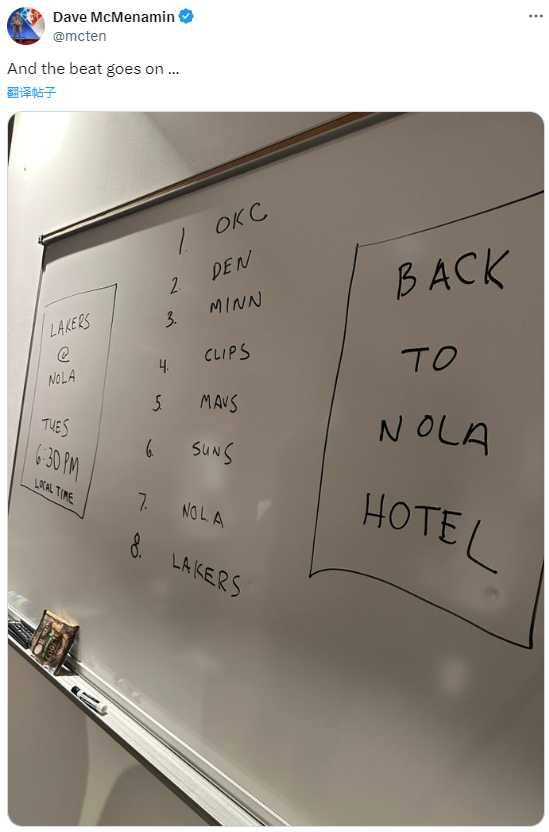 Dave McMenamin
@mcten
And the beat goes on ...
翻译帖子
LAKERS
@
NOLA
TUES
6:30 PM
LOCAL TIME
1. OKC
2. DEN
3. MINN
4. CLIPS
5. MAVS
6. SUNS
7. NOLA
8. LAKERS
BACK
TO
NOLA
HOTEL